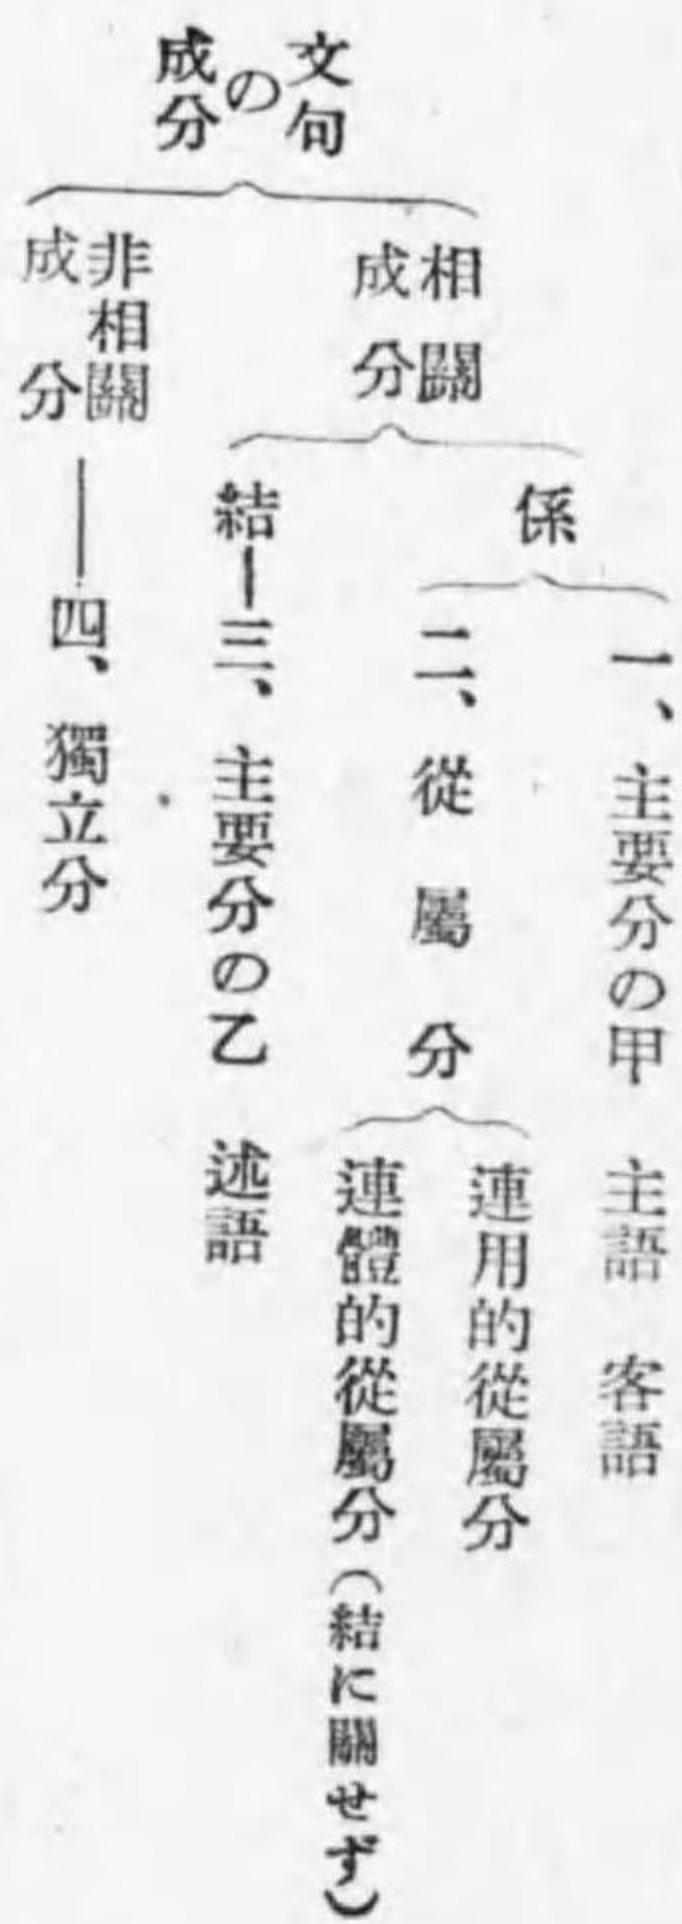 文句
の
成分
相關
成分
係
一、主要分の甲 主語 客語
二、從屬分
連用的從屬分
連體的從屬分(結に關せず)
結―三、主要分の乙 述語
非相關
成分
―四、獨立分